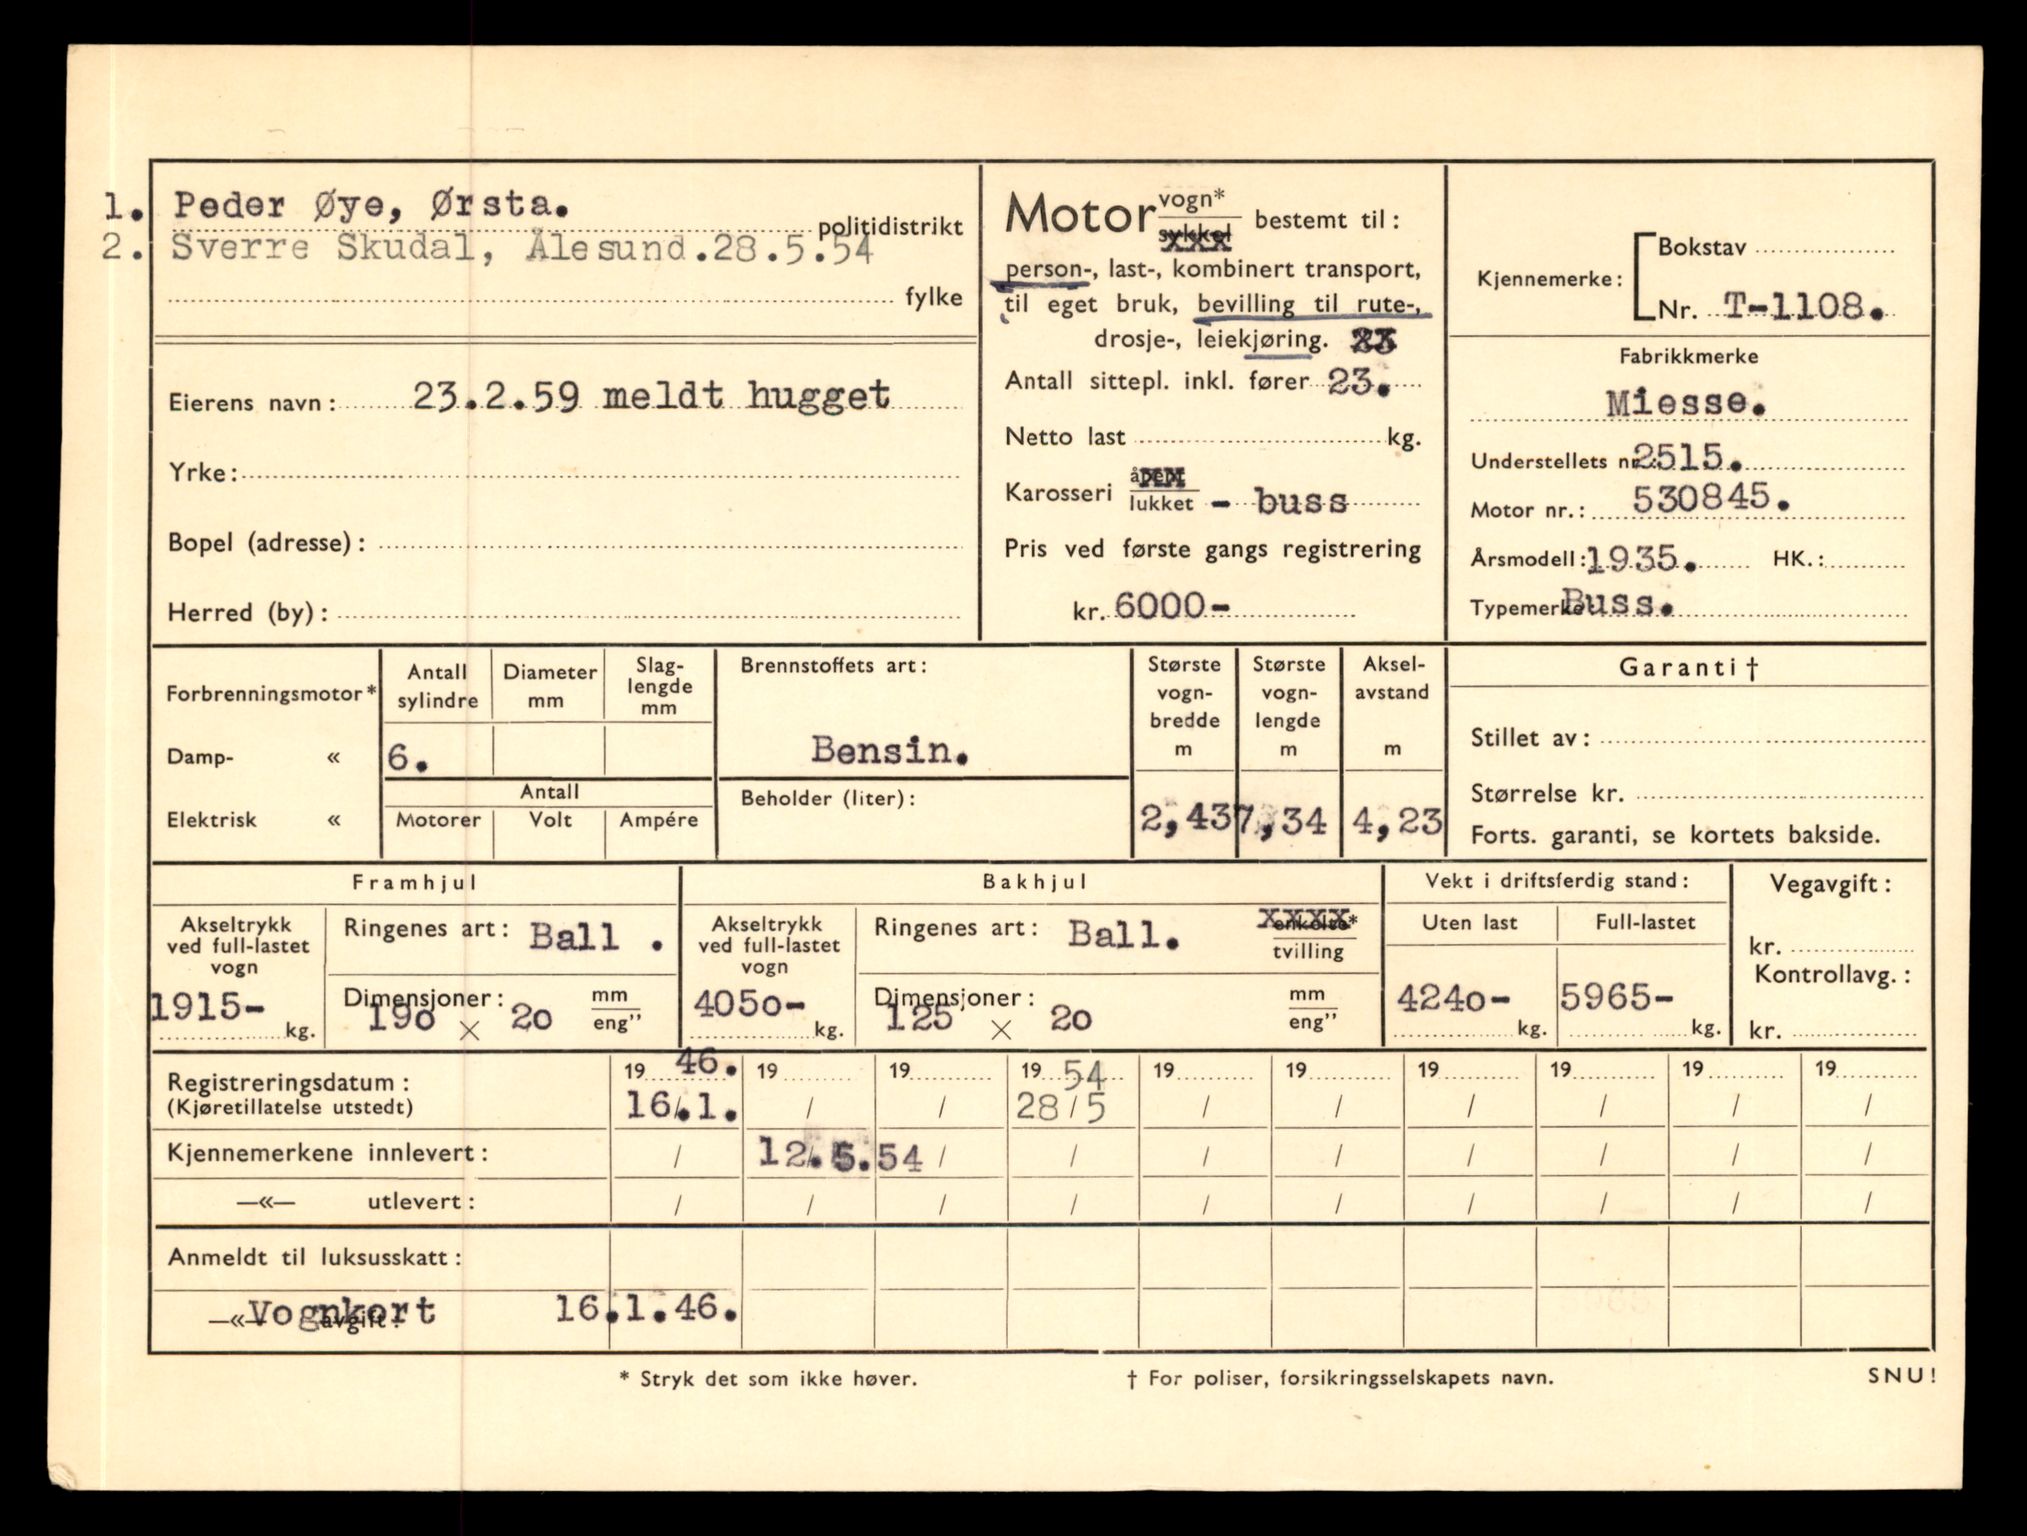 1. Peder Øye, Ørsta.
politidistrikt
2. Sverre Skudal, Ålesund.28.5.54
fylke
Eierens navn: 23.2.59 meldt hugget
Yrke:
Bopel (adresse):
Herred (by):
Motor vogn*
sykkel bestemt til:
person-, last-, kombinert transport,
til eget bruk, bevilling til rute-,
drosje-, leiekjøring. 23
Antall sittepl. inkl. fører 23.
Netto last kg.
Karosseri åpent
lukket - buss
Pris ved første gangs registrering
kr. 6000-
Kjennemerke: Bokstav
Nr. T-1108.
Fabrikkmerke
Miesse.
Understellets nr.: 2515.
Motor nr.: 530845.
Årsmodell: 1935. HK.:
Typemerke Buss.
Forbrenningsmotor*
Damp- «
Elektrisk «
Antall sylindre
Diameter mm
Slag-
lengde
mm
6.
Antall
Motorer Volt Ampére
Brennstoffets art:
Bensin.
Beholder (liter):
Største
vogn-
bredde
m
2,43
Største
vogn-
lengde
m
7,34
Aksel-
avstand
m
4,23
Garanti †
Stillet av:
Størrelse kr.
Forts. garanti, se kortets bakside.
Framhjul
Akseltrykk
ved full-lastet
vogn
1915- kg.
Ringenes art: Ball .
Dimensjoner: mm
190 × 20 eng”
Bakhjul
Akseltrykk
ved full-lastet
vogn
4050- kg.
Ringenes art: Ball. enkelte*
tvilling
Dimensjoner: mm
125 × 20 eng”
Vekt i driftsferdig stand:
Uten last Full-lastet
4240- kg. 5965- kg.
Vegavgift:
kr.
Kontrollavg.:
kr.
Registreringsdatum: 19 46. 19 19 19 54 19 19 19 19 19 19
(Kjøretillatelse utstedt) 16/.1. / / 28/5 / / / / / /
Kjennemerkene innlevert: / 12.5.54 / / / / / / / /
—«— utlevert: / / / / / / / / / /
Anmeldt til luksusskatt:
—«— avgift: Vognkort 16.1.46.
* Stryk det som ikke høver. † For poliser, forsikringsselskapets navn. SNU!